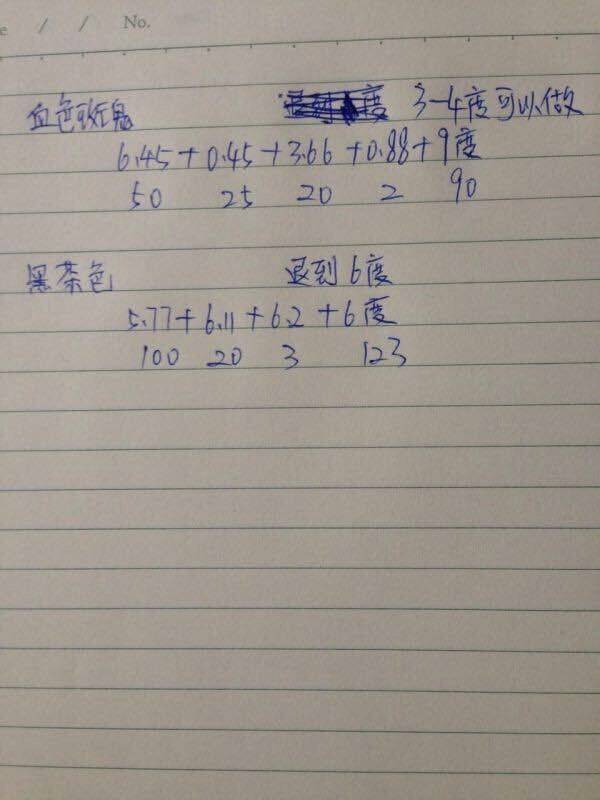 e / / No.
血色玫瑰 3-4度可以做
6.45+0.45+3.66+0.88+9度
50 25 20 2 90
黑茶色 退到6度
5.77+6.11+6.2+6度
100 20 3 123